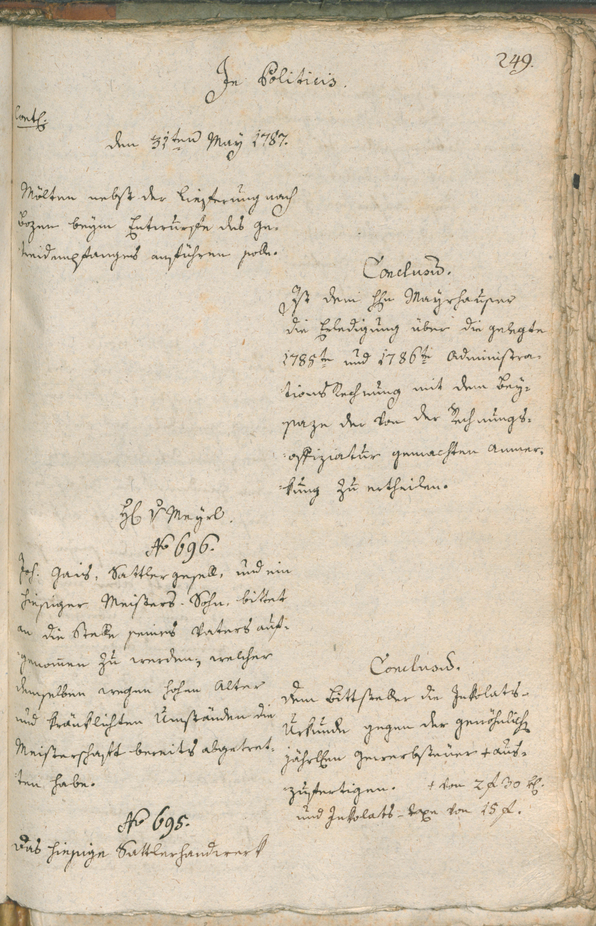 249.
In Politicis.
Cont:
den 31ten May 1787.
Mölten nebst der Lieferung nach
Bozen beym Entwurfe des Ge-
treidempfanges anführen solle.
Conclusum.
Ist dem Hn Mayrhauser
die Erledigung über die gelegte
1785te und 1786te Administra-
tions Rechnung mit dem Bey-
saze der von der Rechnungs-
offiziatur gemachten Anmer-
kung zu ertheilen.
H v Meyrl.
No 696.
Joh. Gais, Sattlergesell, und ein
hiesiger Meisters-Sohn, bittet
an die Stelle seines Vaters auf-
genommen zu werden, welcher
demselben wegen hohen Alter
und kränklichten Umständen die
Meisterschaft bereits abgetret-
ten habe.
Conclusum.
dem Bittsteller die Inkolats-
Urkunde gegen der gewöhnlich
jährlichen Gewerbsteuer + aus-
zufertigen. + von 2 f 30 kr.
und Inkolats-Taxe von 15 f.
No 695.
Das hiesige Sattlerhandwerk